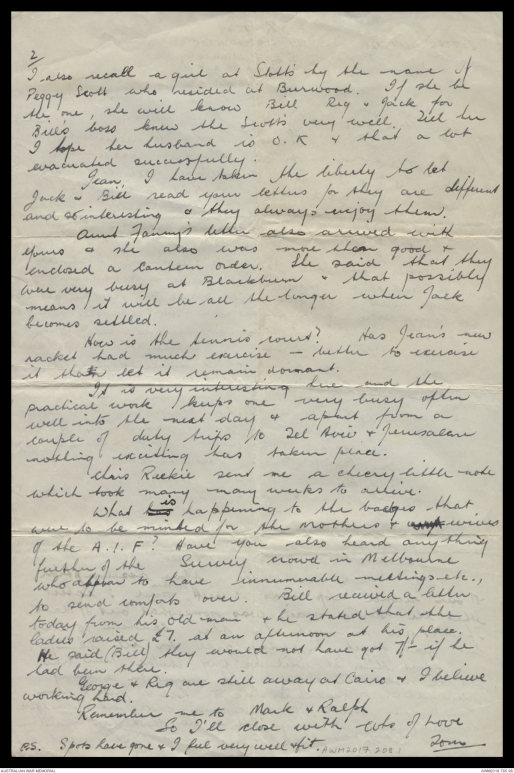 2
I also recall a girl at Stotts by the name of
Peggy Scott who resided at Burwood. If she be
the one, she will know Bill Reg & Jack for
Bill's boss knew the Scotts very well. Tell her
I hope her husband is O.K & that a lot
evacuated successfully.
Jean, I have taken the liberty to let
Jack & Bill read your letters for they are different
and so interesting & they always enjoy them.
Aunt Fanny's letter also arrived with
yours & she also was more than good &
enclosed a Canteen order. She said that they
were very busy at Blackburn & that possibly
means it will be all the longer when Jack
becomes settled.
How is the tennis court? Has Jean's new
racket had much exercise – better to exercise
it than let it remain dormant.
It is very interesting here and the
practical work keeps one very busy often
well into the next day & apart from a
couple of duty trips to Tel Aviv & Jerusalem
nothing exciting has taken place.
Chris Rickie sent me a cheery little note
which took many many weeks to arrive.
What is happening to the badges that
were to be minted for the mothers & wives
of the A.I.F? Have you also heard anything
further of the Survey crowd in Melbourne
who appear to have innumerable meetings etc.,
to send comforts over. Bill received a letter
today from his old man & he stated that the
ladies raised £7. at an afternoon at his place.
He said (Bill) they would not have got 7/- if he
had been there.
George & Reg are still away at Cairo & I believe
working hard.
Remember me to Mark & Ralph
So I'll close with lots of Love
Tom
P.S. Spots have gone & I feel very well & fit.
AWM2017.208.1
AUSTRALIAN WAR MEMORIAL